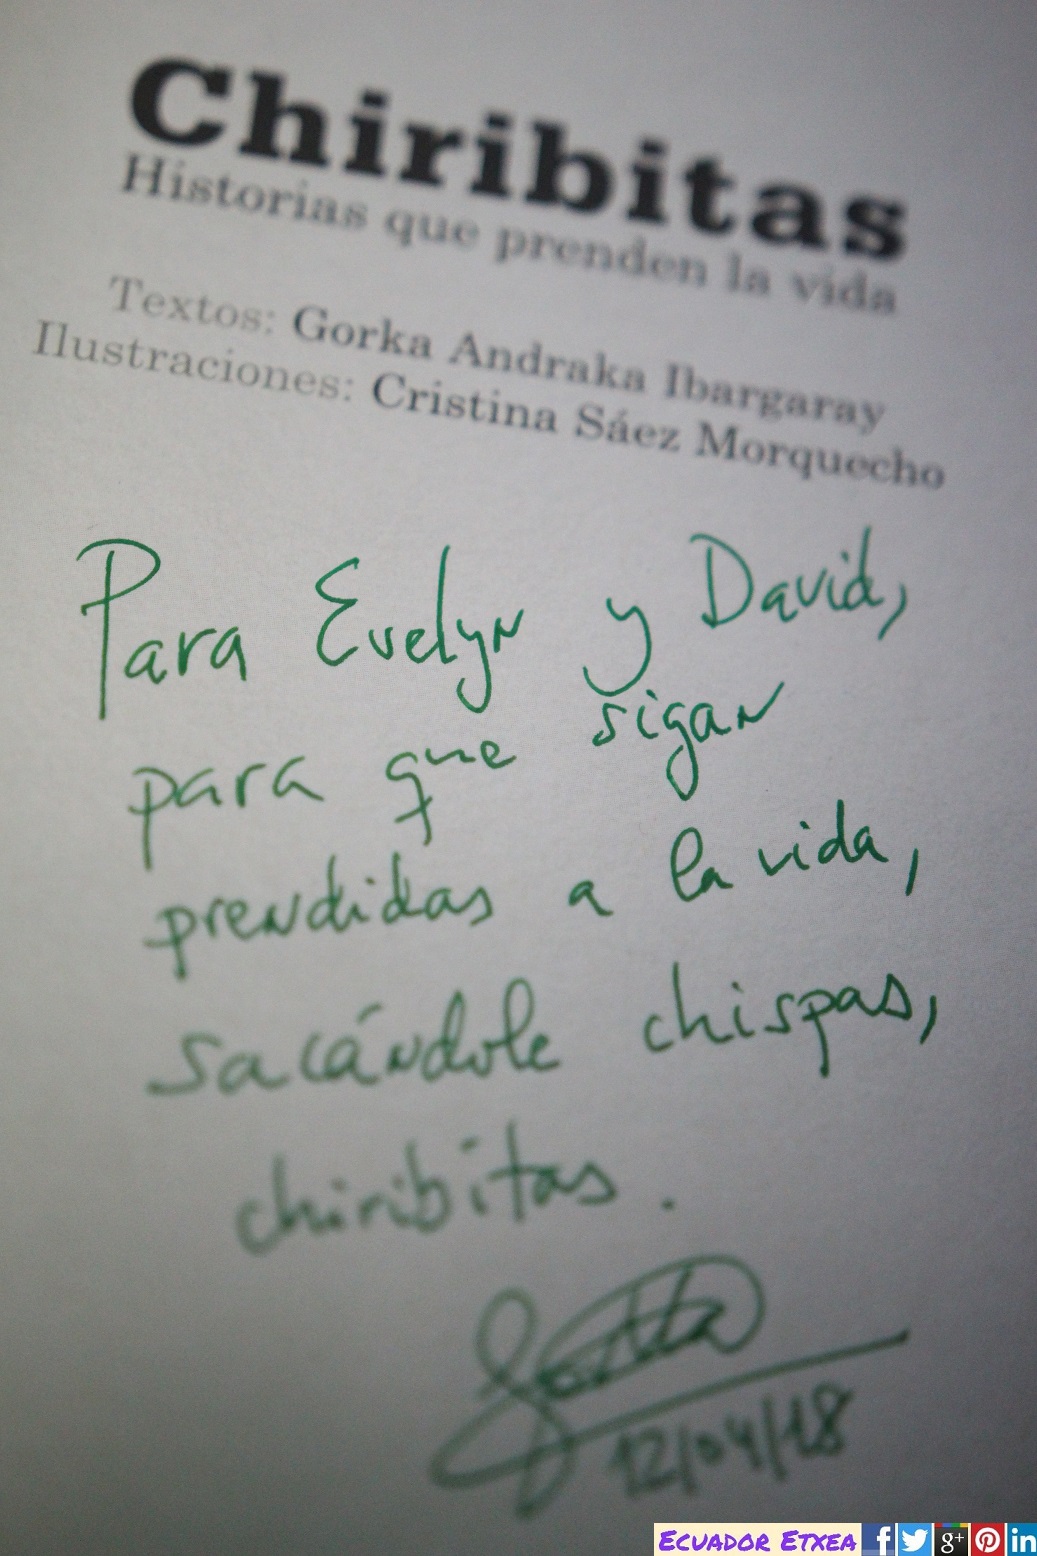 Chiribitas
Historias que prenden la vida
Textos: Gorka Andraka Ibargaray
Ilustraciones: Cristina Sáez Morquecho
Para Evelyn y David,
para que sigan
prendidas a la vida,
sacándole chispas,
chiribitas.
12/04/18
ECUADOR ETXEA f g+ in